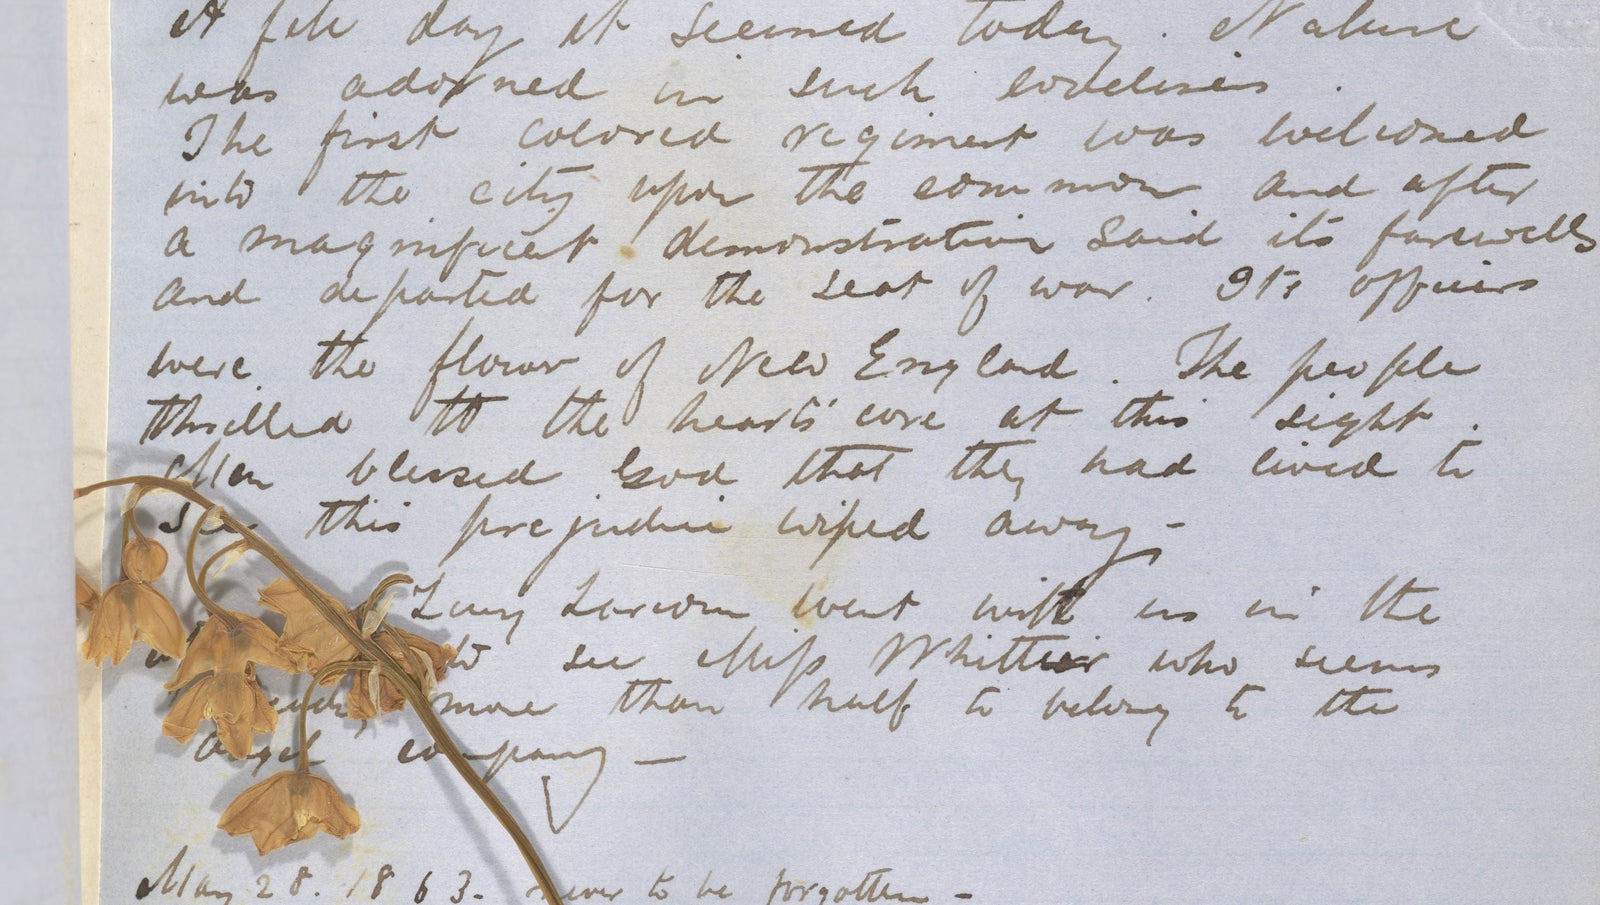 A fete day it seemed today. Nature
was adorned in such loveliness.
The first colored regiment was welcomed
into the city upon the common and after
a magnificent demonstration said its farewells
and departed for the seat of war. Its officers
were the flower of New England. The people
thrilled to the hearts' core at this sight.
Men blessed God that they had lived to
see this prejudice wiped away -
Lucy Larcom went with us in the
to see Miss Whittier who seems
more than half to belong to the
angel company —
May 28. 1863. never to be forgotten -